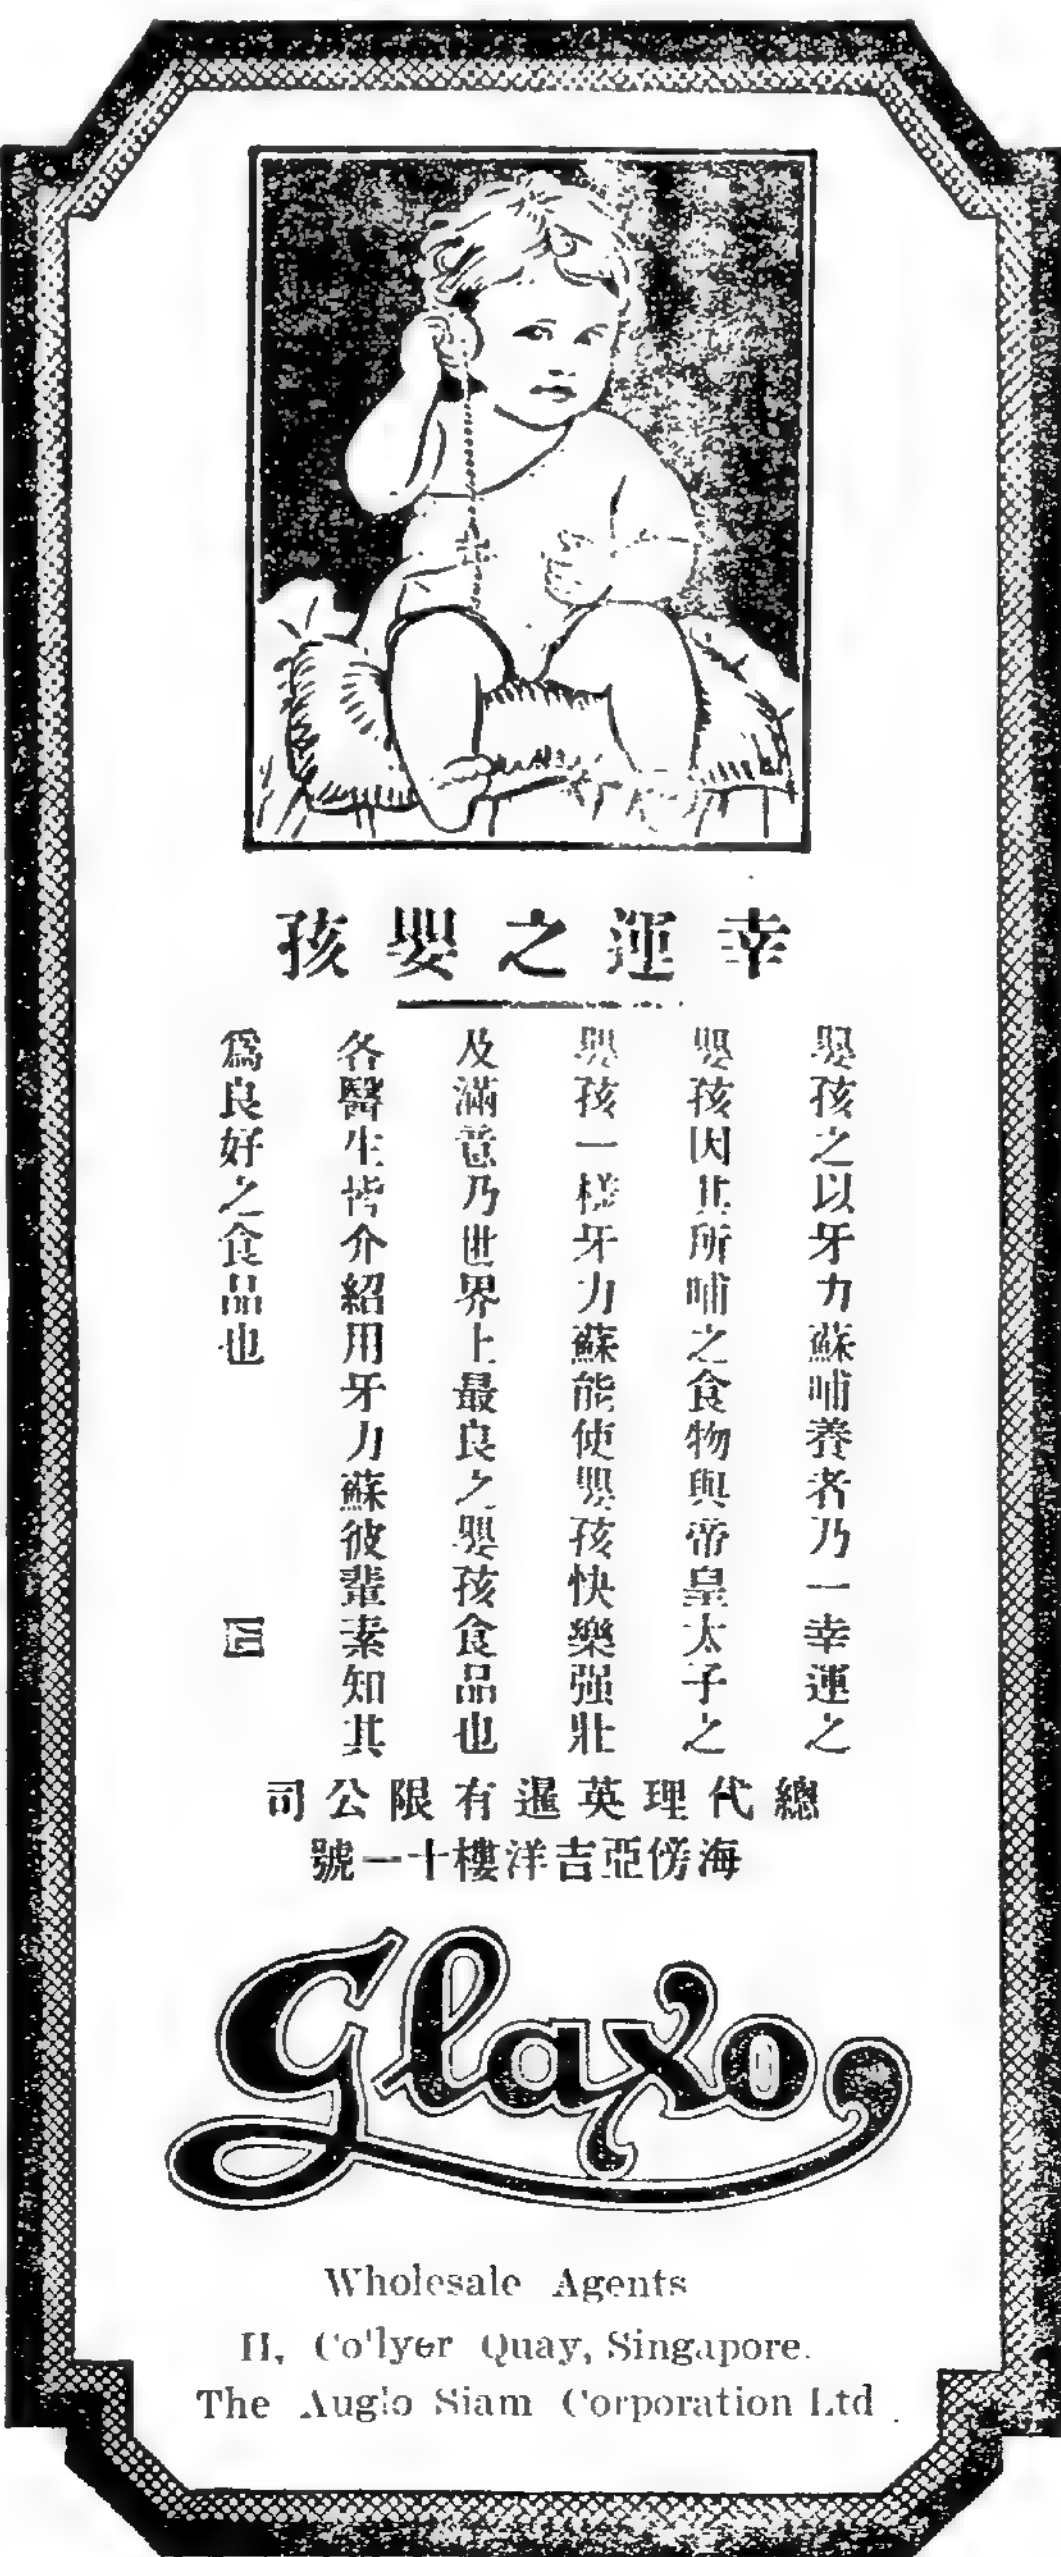 幸運之嬰孩
嬰孩之以牙力蘇哺養者乃一幸運之
嬰孩因其所哺之食物與帝皇太子之
嬰孩一樣牙力蘇能使嬰孩快樂强壯
及滿意乃世界上最良之嬰孩食品也
各醫生皆介紹用牙力蘇彼輩素知其
為良好之食品也
總代理英暹有限公司
海傍亞吉洋樓十一號
Glaxo
Wholesale Agents
11, Collyer Quay, Singapore.
The Anglo Siam Corporation Ltd.